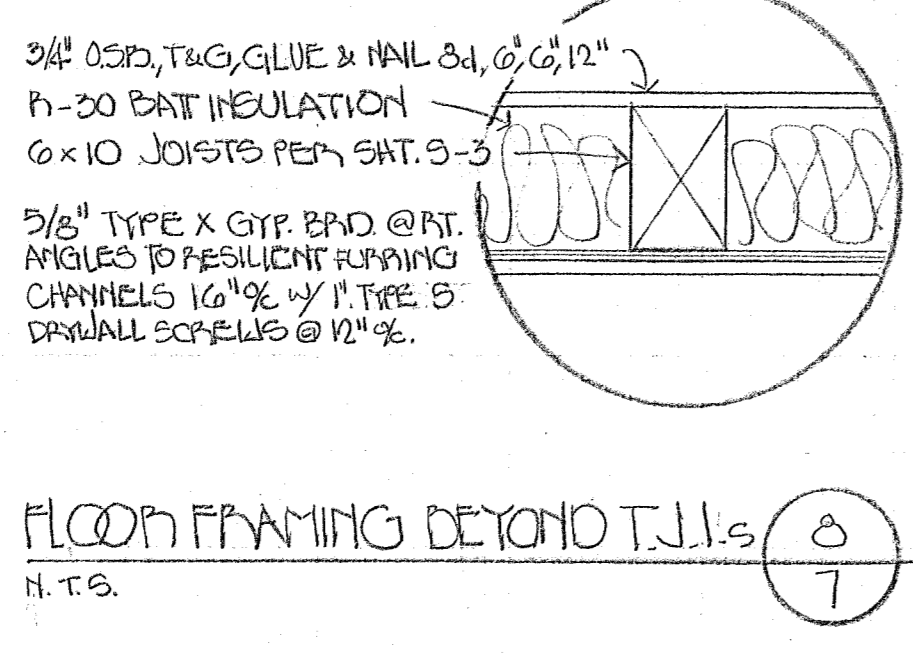 3/4" O.S.B., T&G, GLUE & NAIL 8d, 6", 6", 12"
R-30 BATT INSULATION
6x10 JOISTS PER SHT. S-3
5/8" TYPE X GYP. BRD. @ RT.
ANGLES TO RESILIENT FURRING
CHANNELS 16" O/C W/ 1" TYPE S
DRYWALL SCREWS @ 12" O/C.
FLOOR FRAMING BEYOND T.J.I.s
8
N.T.S.
7